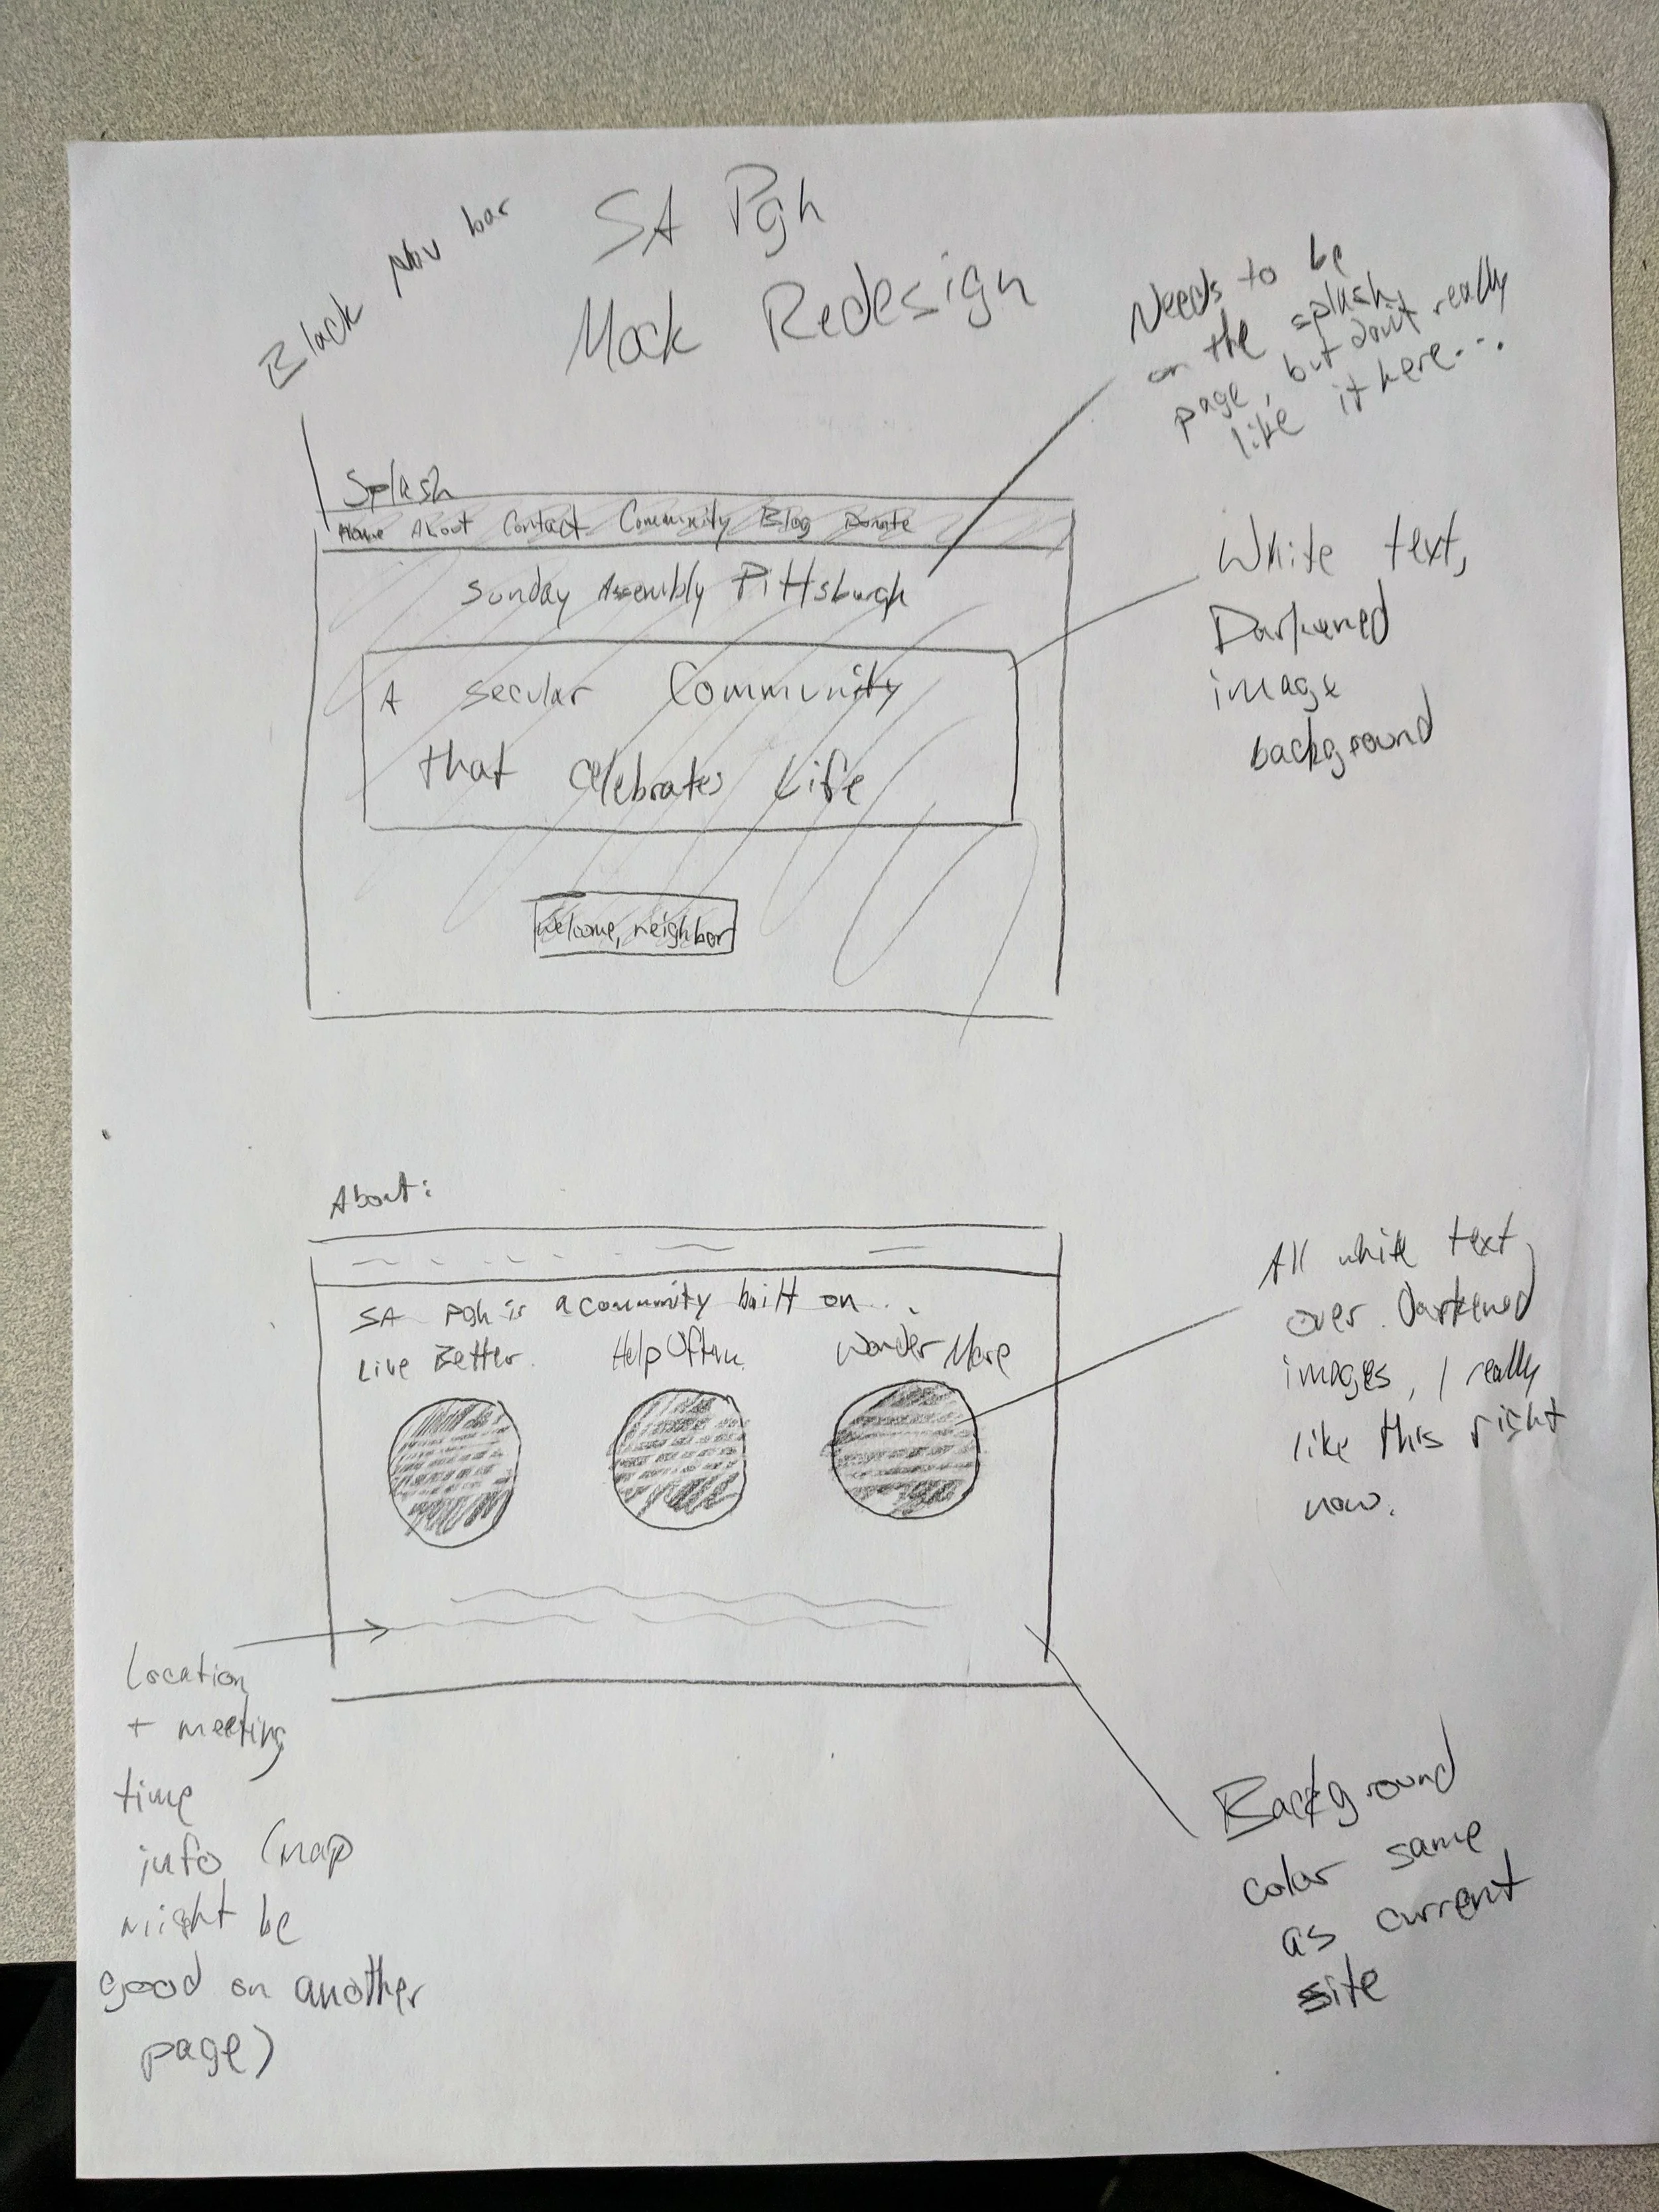 SA Pgh
Mock Redesign
Black Nav bar
Needs to be
on the splash
page, but don't really
like it here...
Splash
Home About Contact Community Blog Donate
Sunday Assembly Pittsburgh
A secular Community
that celebrates Life
Welcome, neighbor
White text,
Darkened
image
background
About:
SA Pgh is a community built on...
Live Better. Help Often. Wonder More
All white text
over Darkened
images, I really
like this right
now.
Location
+ meeting
time
info (map
might be
good on another
page)
Background
color same
as current
site